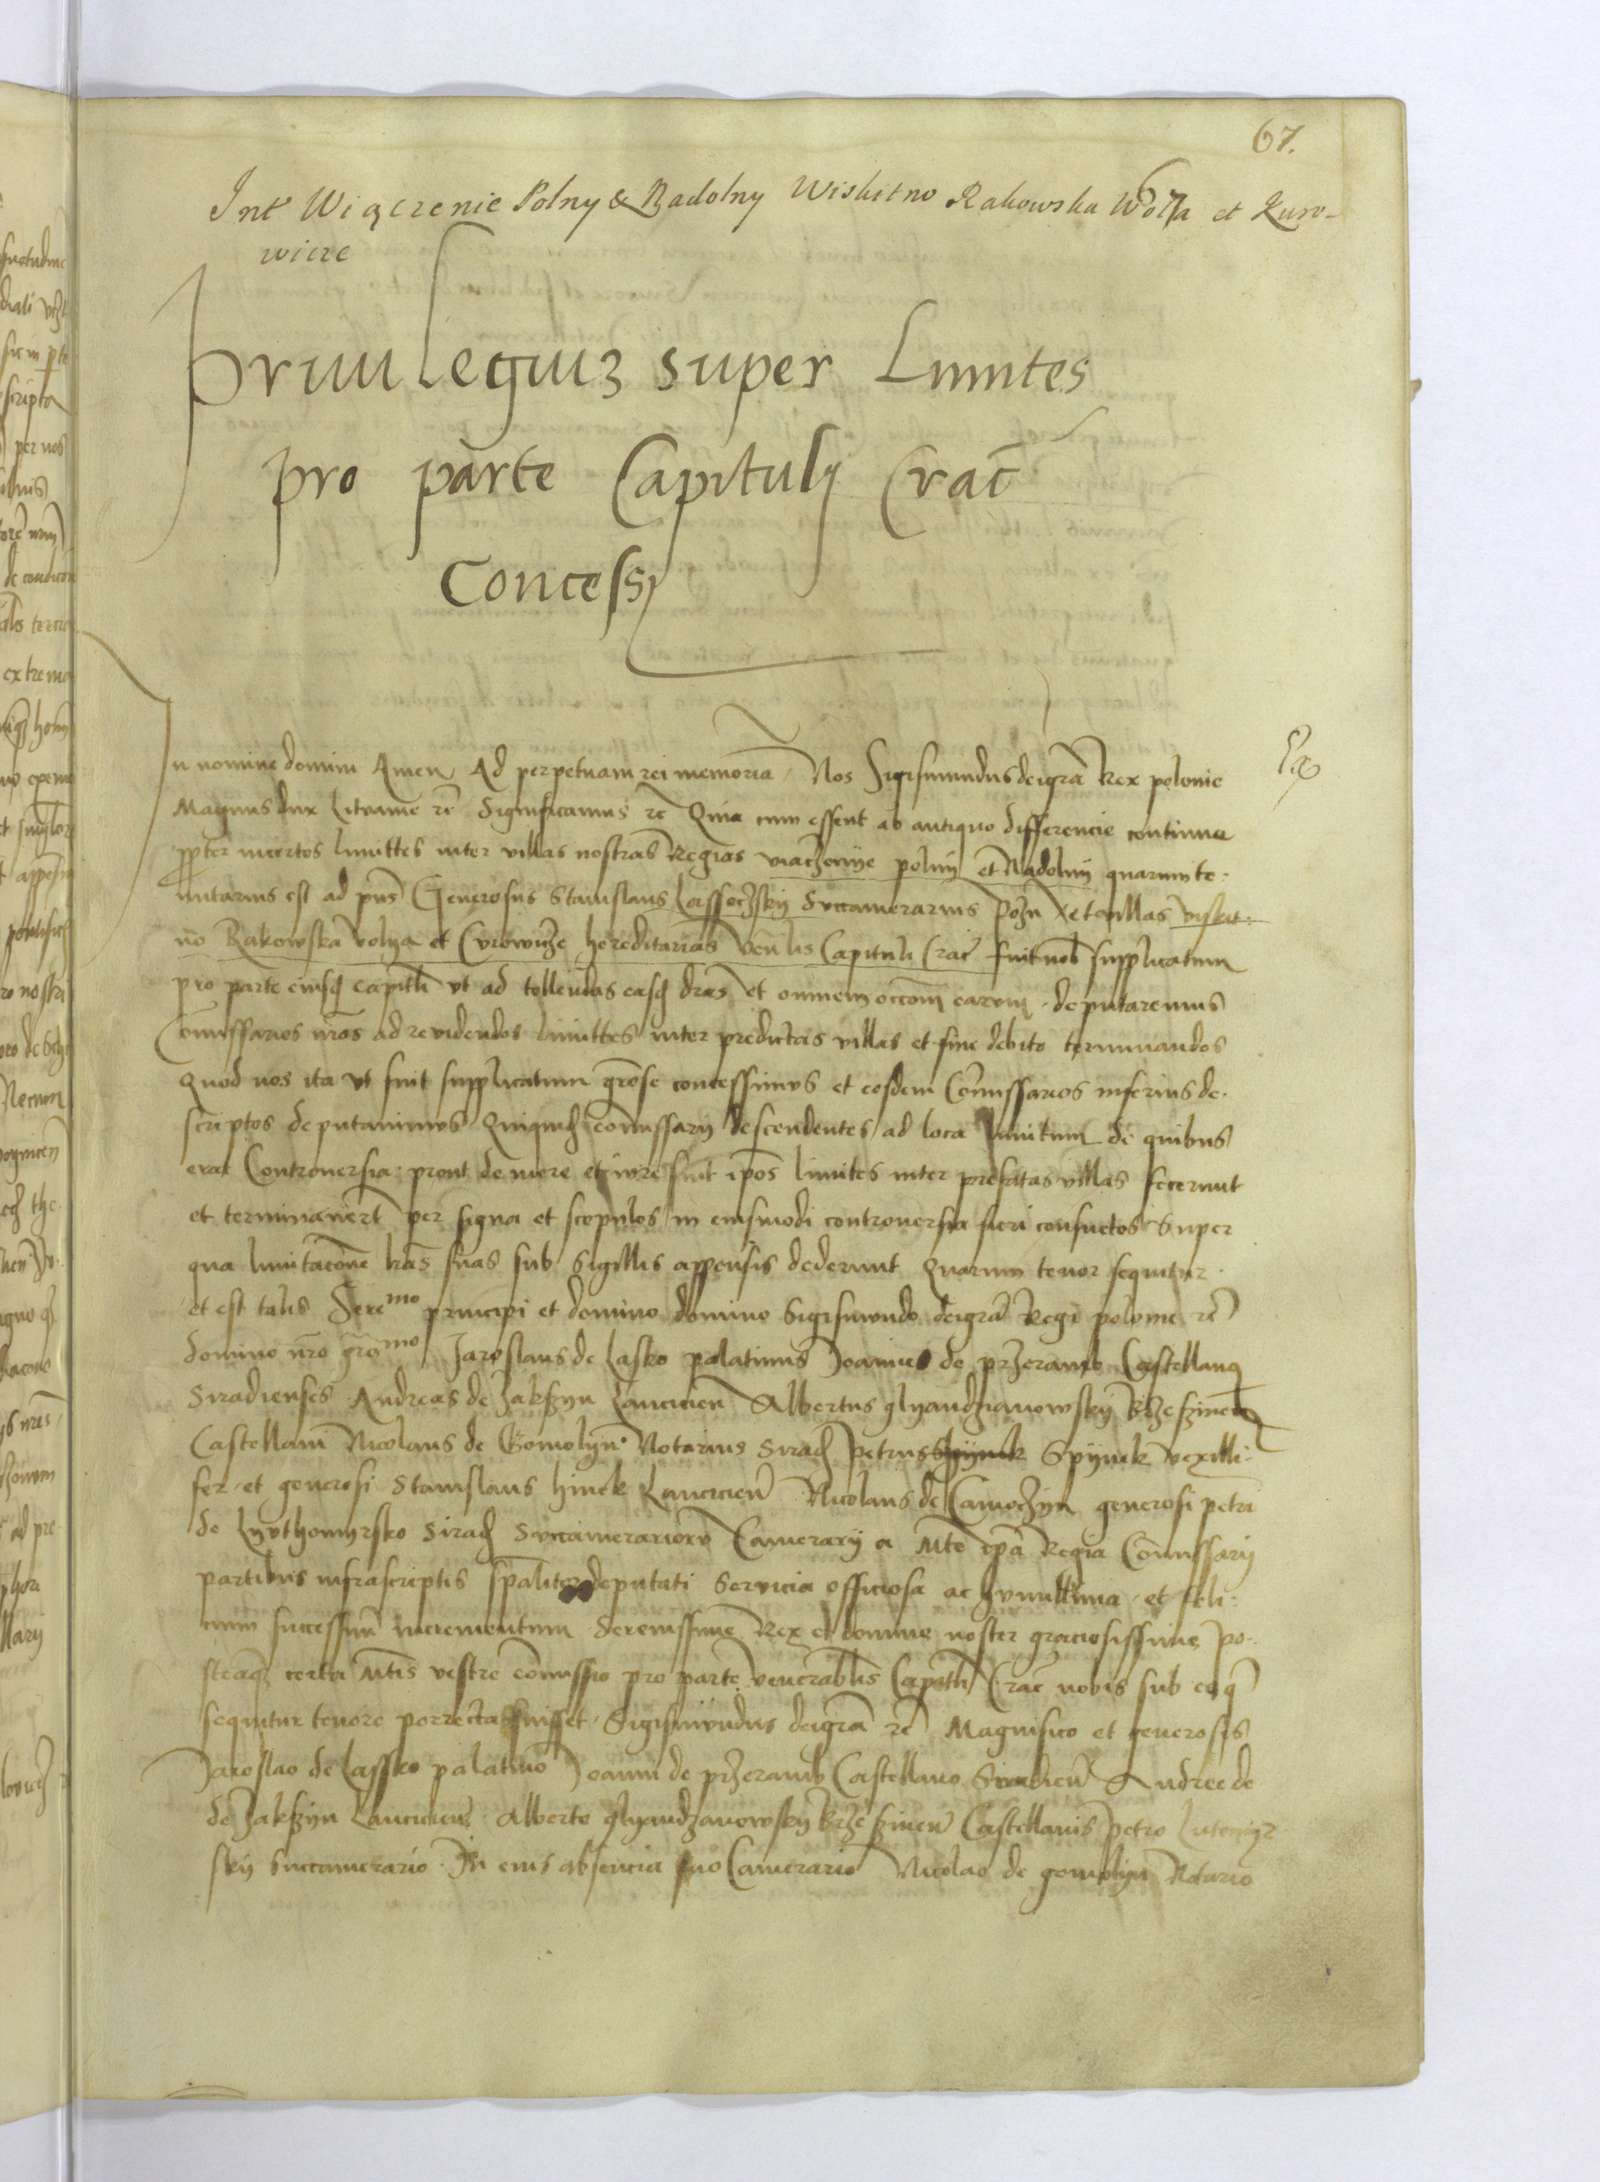 67.
Int Wiączenie Polny & Radolny Wiskitno Rakowska Wola et Kuro-
wicze
Priuilegium super Limites
pro parte Capitulj Crac
Concess
In nomine domini Amen Ad perpetuam rei memoria Nos Sigismundus dei gra Rex polonie
Magnus dux Lituanie rc Significamus rc Quia cum essent ab antiquo differencie continue
propter incertos limittes inter villas nostras Regias viaczenije polnij et Nadolnij quarum te-
nutarius est ad pns Generosus Stanislaus Lassoczskij Succamerarius et villas viskit-
no Rakowska volya et Curowicze hereditarias Capituli Crac fuit nob supplicatum
pro parte eiusd capitli vt ad tollendas easd dras et omnem occom earum deputaremus
Comissarios nros ad reuidendos limittes inter predictas villas et fine debito terminandos
Quod nos ita vt fuit supplicatum grose concessimus et eosdem Comissarios inferius de-
scriptos deputauimus Quiquid comissarij descendentes ad loca limitum de quibus
erat Controuersia prout de more et iure fuit ipos limites inter prefatas villas fecerunt
et terminauert per signa et scopulos in eiusmodi controuersia fieri consuetos Super
qua limitacone lras suas sub sigillis appensis dederunt Quarum tenor sequitur
et est talis Sere mo principi et domino domino Sigismundo dei gra Regi polonie rc
domino nro gro mo Jaroslaus de Lasko palatinus Joannes de przeramb Castellan
Siradienses Andreas de Zakszyn Lancicien Albertus glyandzianowskij Brzeszinen
Castellani Nicolaus de Gomolyn Notarius Sirad Petrus Spijnek Spijnek vexilli-
fer et generosi Stanislaus hinek Lancicien Nicolaus de Camoczijn generosi petri
de Lyuthomyrsko Sirad Succamerariorum Camerarij a Mte ipa Regia Comissarij
partibus infrascriptis spaliter deputati Seruicia officiosa ac humillima et feli-
cium successuum incrementum Serenissime Rex et domine noster graciosissime po-
steaq certa Mtis vestre comissio pro parte venerablis Capitli Crac nobis sub eo q
sequitur tenore porrecta fuisset Sigismundus dei gra rc Magnifico et generosis
Jaroslao de Lassko palatino Joanni de przeramb Castellano Siradien Andree de
de Zakszyn Lancicien Alberto glyandzianowskij Brzeszinen Castellanis petro Lutomyr
skij Succamerario In eius absencia suo Camerario Nicolao de gomolyn Notario